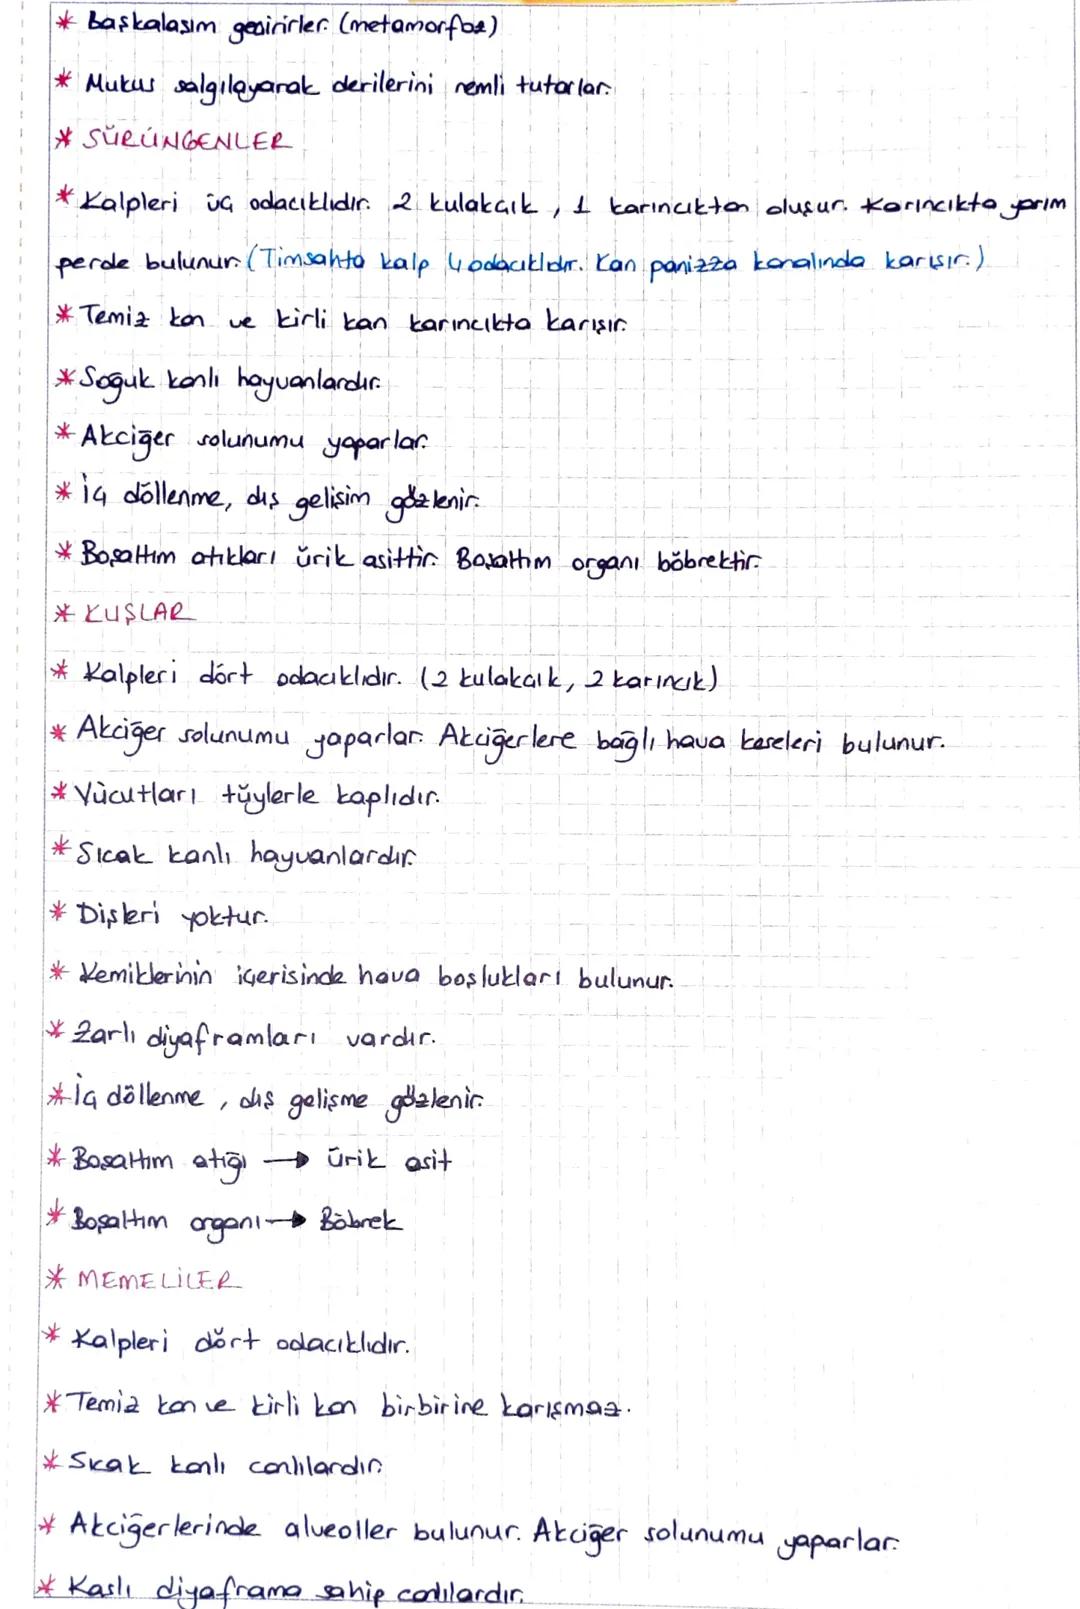 * Başkalaşım geçirirler. (metamorfoz)
* Mukus salgılayarak derilerini nemli tutarlar.
* SÜRÜNGENLER
* Kalpleri üç odacıklıdır. 2 kulakçık, 1 karıncıktan oluşur. Karıncıkta yarım
perde bulunur. (Timsahta kalp 4 odacıklıdır. Kan panizza kanalında karışır.)
* Temiz kan ve kirli kan karıncıkta karışır.
* Soğuk kanlı hayvanlardır.
* Akciğer solunumu yaparlar.
* İç döllenme, dış gelişim gözlenir.
* Boşaltım atıkları ürik asittir. Boşaltım organı böbrektir.
* KUŞLAR
* Kalpleri dört odacıklıdır. (2 kulakçık, 2 karıncık)
* Akciğer solunumu yaparlar. Akciğerlere bağlı hava keseleri bulunur.
* Vücutları tüylerle kaplıdır.
* Sıcak kanlı hayvanlardır.
* Dişleri yoktur.
* Kemiklerinin içerisinde hava boşlukları bulunur.
* Zarlı diyaframları vardır.
* İç döllenme, dış gelişme gözlenir.
* Boşaltım atığı → ürik asit
* Boşaltım organı → Böbrek
* MEMELİLER
* Kalpleri dört odacıklıdır.
* Temiz kan ve kirli kan birbirine karışmaz.
* Sıcak kanlı canlılardır.
* Akciğerlerinde alveoller bulunur. Akciğer solunumu yaparlar.
* Kaslı diyaframa sahip canlılardır.